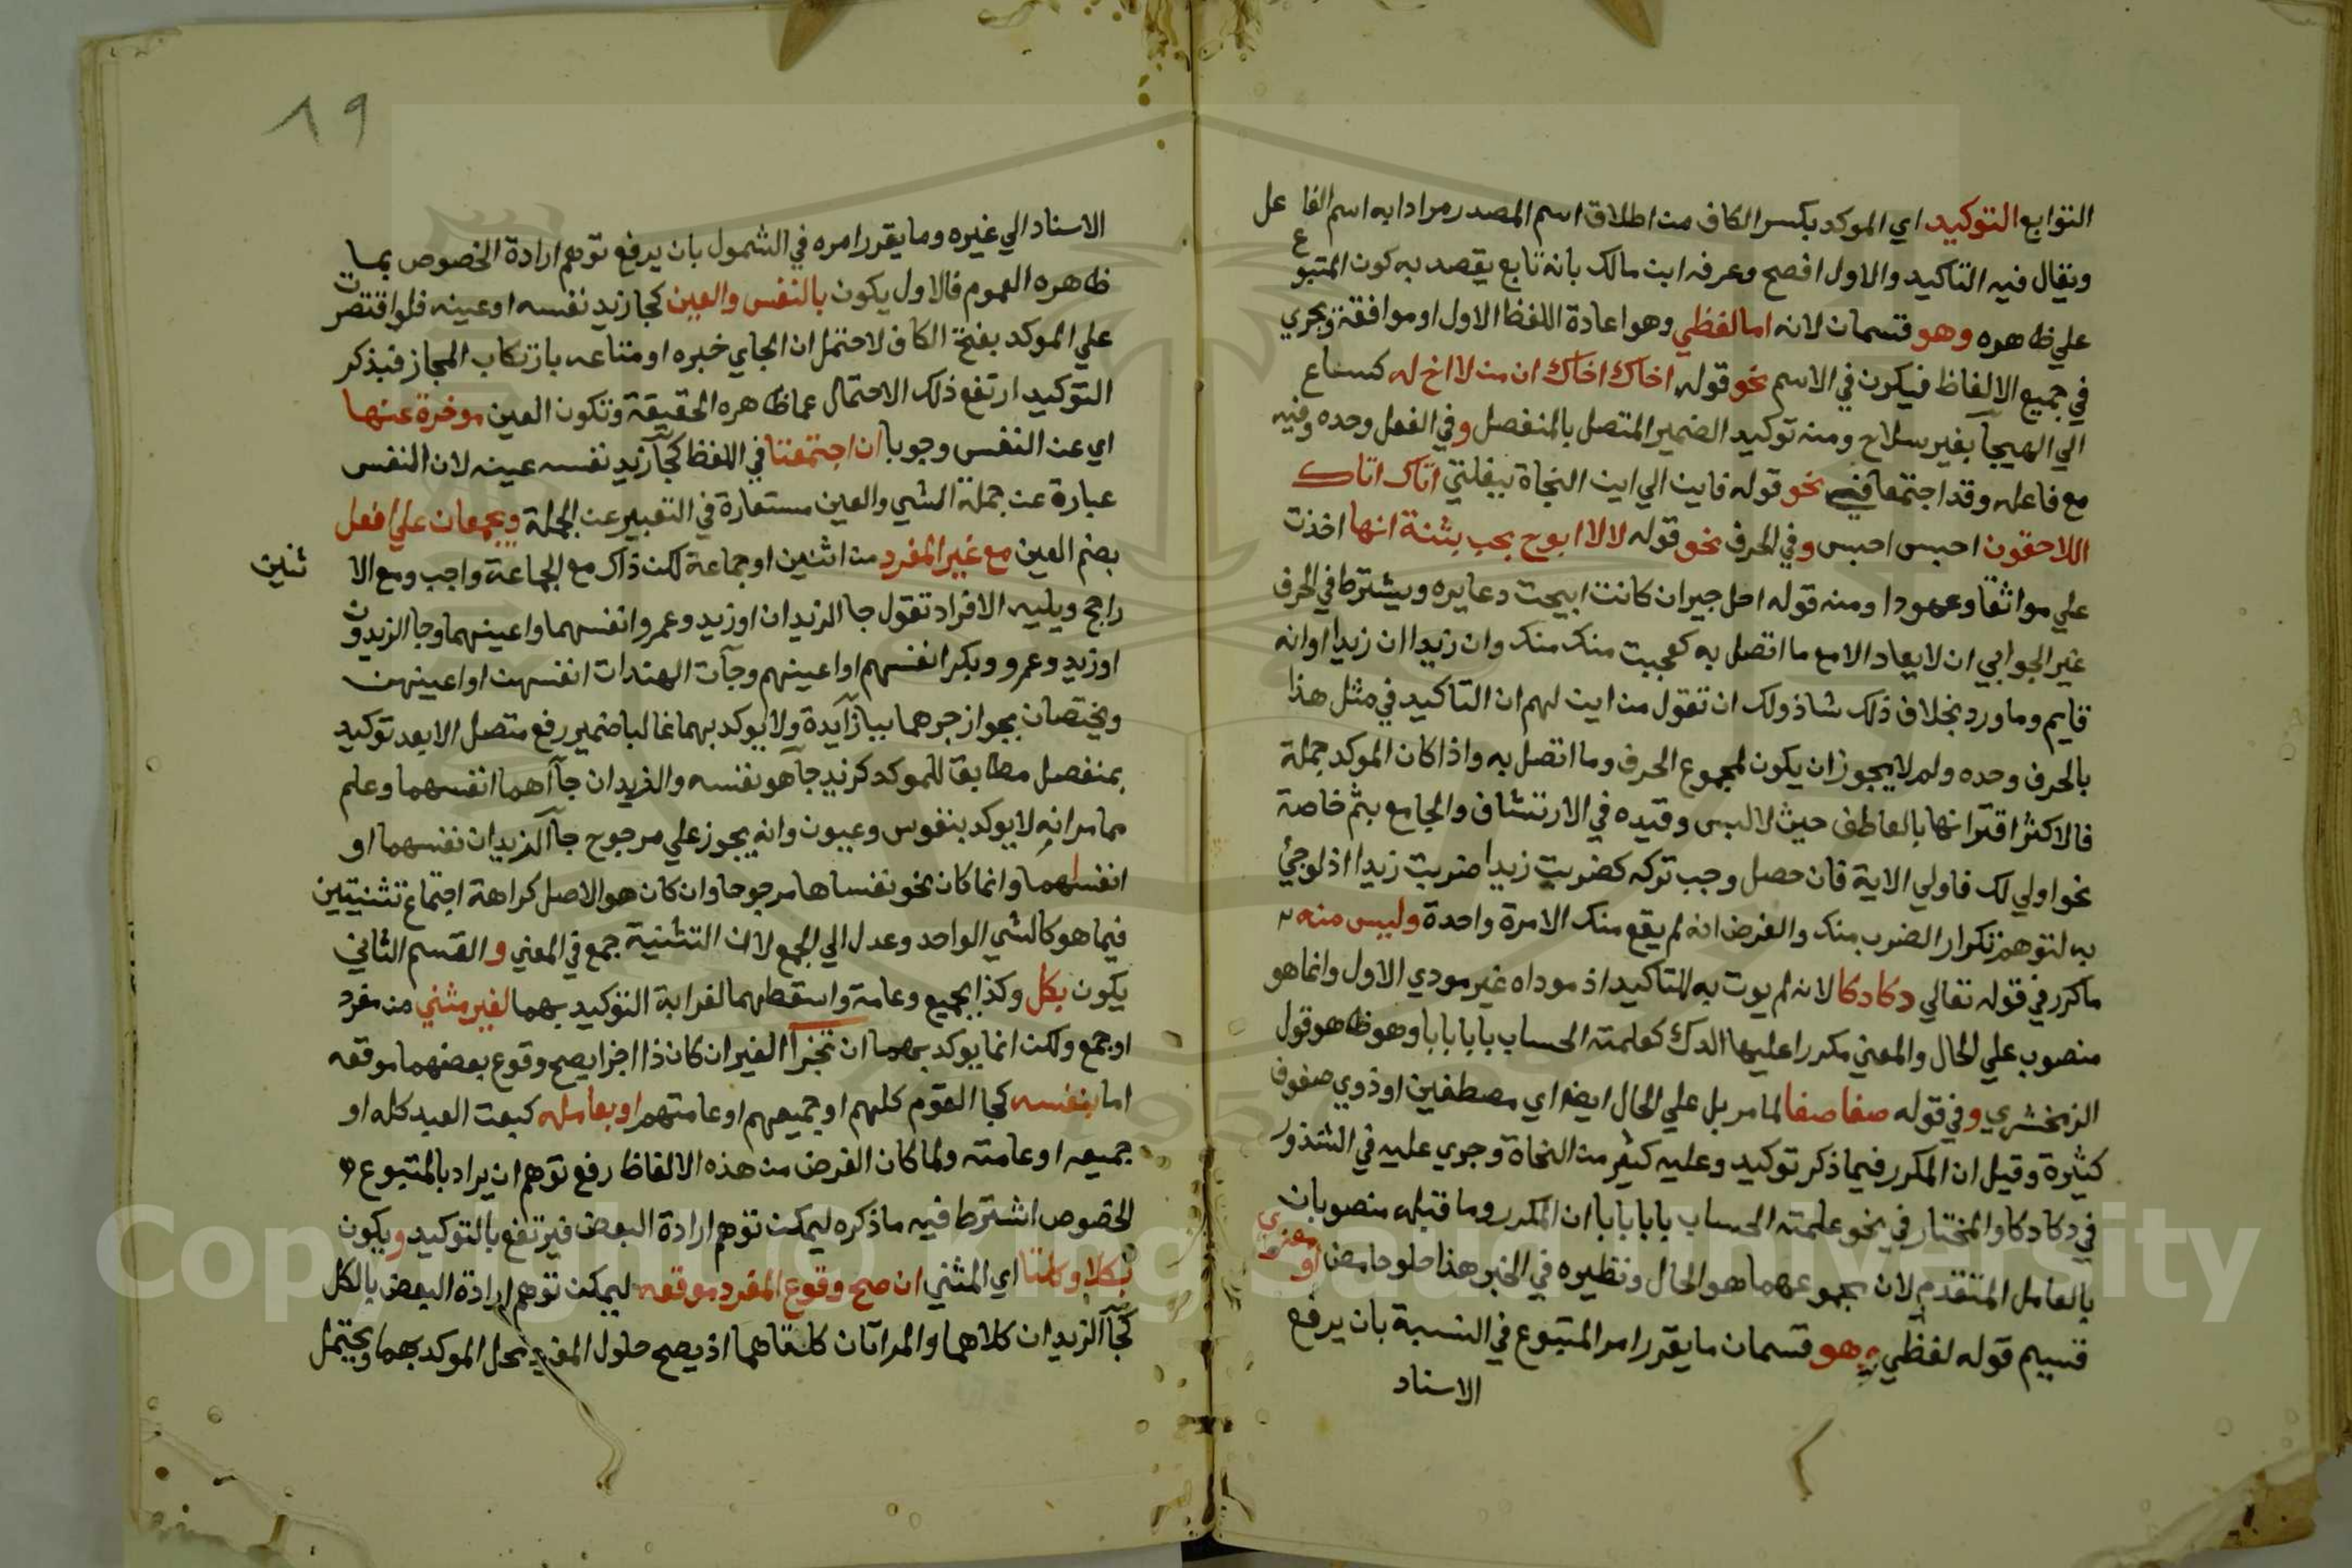 التوابع التوكيد اي الموكد بكسر الكاف من اطلاق اسم المصدر مرادا به اسم الفاعل
ويقال فيه التاكيد والاول افصح وعرفه ابن مالك بانه تابع يقصد به كون المتبوع
علي ظاهره وهو قسمان لانه اما لفظي وهو اعادة اللفظ الاول او موافقة ويجري
في جميع الالفاظ فيكون في الاسم نحو قوله اخاك اخاك ان من لا اخ له كساع
الي الهيجآ بغير سلاح ومنه توكيد الضمير المتصل بالمنفصل وفي الفعل وحده وفيه
مع فاعله وقد اجتمعا في نحو قوله فاين الي اين النجاة ببغلتي اتاك اتاك
اللاحقون احبس احبس وفي الحرف نحو قوله لا لا ابوح بحب بثنة انها اخذت
علي مواثقا وعهودا ومنه قوله اجل جير ان كانت ابيحت دعايره ويشترط في الحرف
غير الجوابي ان لا يعاد الا مع ما اتصل به كعجبت منك منك وان زيدا ان زيدا او انه
قايم وما ورد بخلاف ذلك شاذ ولك ان تقول من اين لهم ان التاكيد في مثل هذا
بالحرف وحده ولم لا يجوز ان يكون لمجموع الحرف وما اتصل به واذا كان الموكد جملة
فالاكثر اقترانها بالعاطف حيث لا لبس وقيده في الارتشاف والجامع بثم خاصة
نحو اولي لك فاولي الاية فان حصل وجب تركه كضربت زيدا ضربت زيدا اذ لو جئ
به لتوهم تكرار الضرب منك والغرض انه لم يقع منك الا مرة واحدة وليس منه
ما كرر في قوله تعالي دكا دكا لانه لم يوت به للتاكيد اذ موداه غير مودي الاول وانما هو
منصوب علي الحال والمعني مكررا عليها الدك كعلمته الحساب بابا بابا وهو ظاهر قول
الزمخشري وفي قوله صفا صفا لما مر بل علي الحال ايضا اي مصطفين او ذوي صفوف
كثيرة وقيل ان المكرر فيما ذكر توكيد وعليه كثير من النحاة وجري عليه في الشذور
في دكا دكا والمختار في نحو علمته الحساب بابا بابا ان المكرر وما قبله منصوبان
بالعامل المتقدم لان مجموعهما هو الحال ونظيره في الخبر هذا حلو حامض او معنوي
قسيم قوله لفظي وهو قسمان ما يقرر امر المتبوع في النسبة بان يرفع
الاسناد
٨٩
الاسناد الي غيره وما يقرر امره في الشمول بان يرفع توهم ارادة الخصوص بما
ظاهره العموم فالاول يكون بالنفس والعين كجا زيد نفسه او عينه فلو اقتصرت
علي الموكد بفتح الكاف لاحتمل ان الجاي خبره او متاعه بارتكاب المجاز فبذكر
التوكيد ارتفع ذلك الاحتمال عما ظاهره الحقيقة وتكون العين موخرة عنها
اي عن النفس وجوبا ان اجتمعتا في اللفظ كجآ زيد نفسه عينه لان النفس
عبارة عن جملة الشي والعين مستعارة في التعبير عن الجملة ويجمعان علي افعل
بضم العين مع غير المفرد من اثنين او جماعة لكن ذاك مع الجماعة واجب ومع الاثنين
راجح ويليه الافراد تقول جا الزيدان او زيد وعمرو انفسهما واعينهما وجا الزيدون
او زيد وعمرو وبكر انفسهم او اعينهم وجآت الهندات انفسهن او اعينهن
ويختصان بجواز جرهما ببا زآيدة ولا يوكد بهما غالبا ضمير رفع متصل الا بعد توكيد
بمنفصل مطابقا للموكد كزيد جآ هو نفسه والزيدان جآا هما انفسهما وعلم
مما مر انه لا يوكد بنفوس وعيون وانه يجوز علي مرجوح جآ الزيدان نفسهما او
انفسهما وانما كان نحو نفساها مرجوحا وان كان هو الاصل كراهة اجتماع تثنيتين
فيما هو كالشي الواحد وعدل الي الجمع لان التثنية جمع في المعني و القسم الثاني
يكون بكل وكذا بجميع وعامة واسقطهما لغرابة التوكيد بهما لغير مثني من مفرد
او جمع ولكن انما يوكد بهما ان تجزأ الغير ان كان ذا اجزا يصح وقوع بعضهما موقعه
اما بنفسه كجا القوم كلهم او جميعهم او عامتهم او بعامله كبعت العبد كله او
جميعه او عامته ولما كان الغرض من هذه الالفاظ رفع توهم ان يراد بالمتبوع
الخصوص اشترط فيه ما ذكره ليمكن توهم ارادة البعض فيرتفع بالتوكيد ويكون
بكلا وكلتا اي المثني ان صح وقوع المفرد موقعه ليمكن توهم ارادة البعض بالكل
كجآ الزيدان كلاهما والمراتان كلتاهما اذ يصح حلول المفرد محل الموكد بهما ويحتمل
Copyright © King Saud University